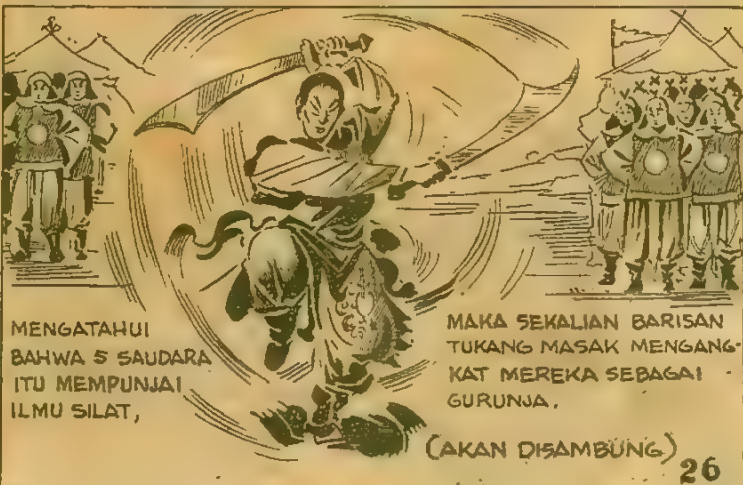 MENGATAHUI
BAHWA 5 SAUDARA
ITU MEMPUNJAI
ILMU SILAT,
MAKA SEKALIAN BARISAN
TUKANG MASAK MENGANG-
KAT MEREKA SEBAGAI
GURUNJA.
(AKAN DISAMBUNG)
26